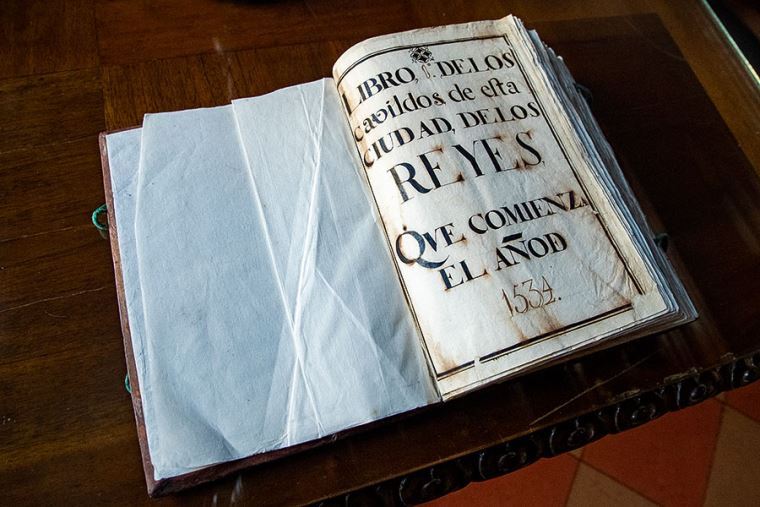 LIBRO, 1º. DE LOS
cavildos, de esta
CIUDAD, DE LOS
REYES,
QVE COMIENZA
EL AÑO D
1534.